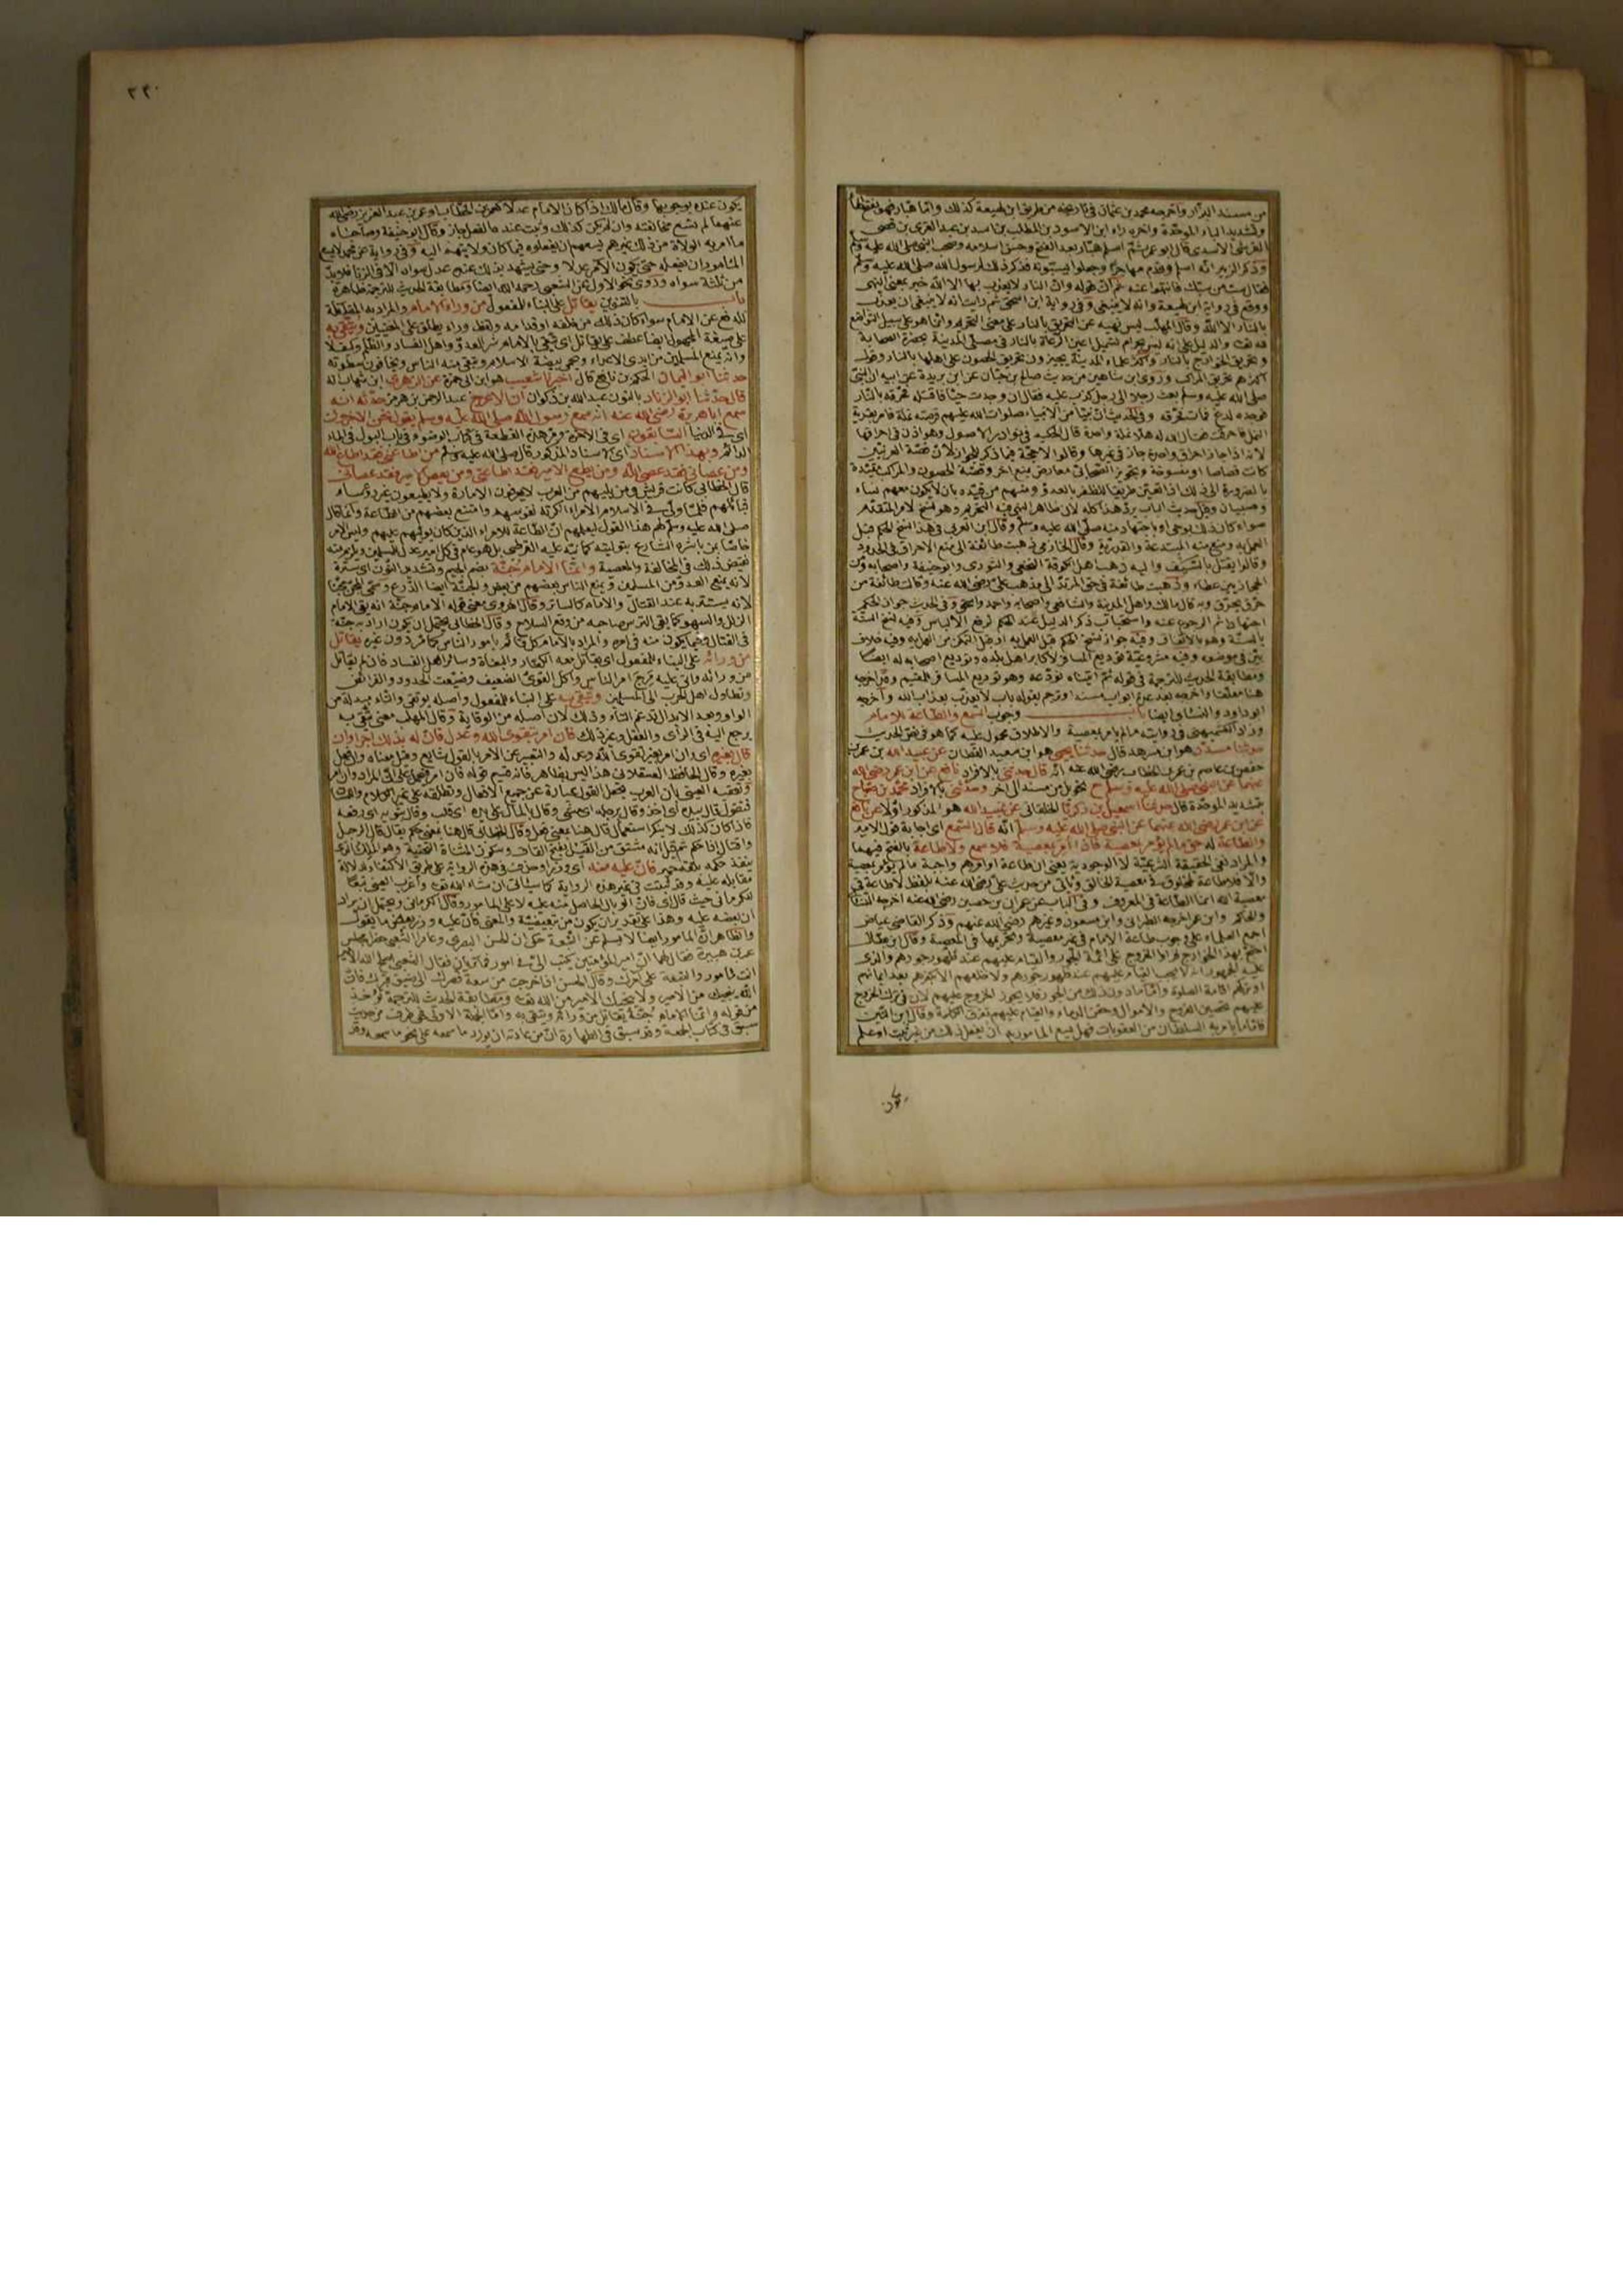 من مسند البزار واخرجه محمد بن عثمان في تاريخه من طريق ابن لهيعة كذلك واما هبار فهو بفتح الهاء
وتشديد الباء الموحدة واخره راء ابن الاسود بن المطلب بن اسد بن عبد العزى بن قصي
القرشي الاسدي قال ابو عمر ثم اسلم هبار بعد الفتح وحسن اسلامه وصحب النبي صلى الله عليه وسلم
وذكر الزبير انه اسلم وقدم مهاجرا وجعلوا يسبونه فذكر ذلك لرسول الله صلى الله عليه وسلم
فقال سب من سبك فانتهوا عنه ثم ان قوله وان النار لا يعذب بها الا الله خبر بمعنى النهي
ووقع في رواية ابن لهيعة وانه لا ينبغي وفي رواية ابن اسحق ثم رايت انه لا ينبغي ان يعذب
بالنار الا الله وقال المهلب ليس نهيه عن التحريق بالنار على معنى التحريم وانما هو على سبيل التواضع
لله تعالى والدليل على انه ليس بحرام تسميل اعين الرعاة بالنار في مصلى المدينة بحضرة الصحابة
وتحريق الخوارج بالنار واكثر علماء المدينة يجيزون تحريق الحصون على اهلها بالنار وقول
اكثرهم بتحريق المراكب وروى ابن شاهين من حديث صالح بن حبان عن ابن بريدة عن ابيه ان النبي
صلى الله عليه وسلم بعث رجلا الى رجل كذب عليه فقال ان وجدت حيا فاقتله ثم حرقه بالنار
فوجده لدغ فمات فحرقه وفي الحديث ان نبيا من الانبياء صلوات الله عليهم قرصته نملة فامر بقرية
النمل فاحرقت فقال الله له هلا نملة واحدة قال الحكيم في نوادر الاصول وهو اذن في احراقها
لانه اذا جاز احراق واحدة جاز في غيرها وقالوا لا حجة فيما ذكر للجواز لان قصة العرنيين
كانت قصاصا او منسوخة وتجويز الصحابي معارض بمنع اخر وقصة الحصون والمراكب مقيدة
بالضرورة الى ذلك اذا تعين طريقا للظفر بالعدو ومنهم من قيده بان لا يكون معهم نساء
وصبيان وقيل حديث الباب يرد هذا كله لان ظاهر النهي فيه التحريم وهو نسخ لامره المتقدم
سواء كان ذلك بوحي او باجتهاد منه صلى الله عليه وسلم وقال ابن العربي في هذا نسخ الحكم قبل
العمل به ومنع منه المبتدعة والقدرية وقال الحازمي ذهبت طائفة الى منع الاحراق في الحدود
وقالوا يقتل بالسيف واليه ذهب اهل الكوفة النخعي والثوري وابو حنيفة واصحابه ومن
الحجازيين عطاء وذهبت طائفة في حق المرتد الى مذهب علي رضي الله عنه وقالت طائفة من
حرق يحرق وبه قال مالك واهل المدينة والشافعي واصحابه واحمد واسحق وفي الحديث جواز الحكم
اجتهادا ثم الرجوع عنه واستحباب ذكر الدليل عند الحكم لرفع الالباس وفيه نسخ السنة
بالسنة وهو بالاتفاق وفيه جواز نسخ الحكم قبل العمل به او قبل التمكن من العمل به وفيه خلاف
بين في موضعه وفيه مشروعية توديع المسافر لاكابر اهل بلده وتوديع اصحابه له ايضا
ومطابقة الحديث للترجمة في قوله ثم اتيناه نودعه وهو توديع المسافر للمقيم وقد اخرجه
هنا معلقا واخرجه بعد عدة ابواب مسندا وترجم بقوله باب لا يعذب بعذاب الله واخرجه
ابو داود والنسائي ايضا باب وجوب السمع والطاعة للامام
وزاد الكشميهني في روايته ما لم يامر بمعصية والاطلاق محمول عليه كما هو في نص الحديث
حدثنا مسدد هو ابن مسرهد قال حدثنا يحيى هو ابن سعيد القطان عن عبيد الله بن عمر بن
حفص بن عاصم بن عمر بن الخطاب رضي الله عنه انه قال حدثني بالافراد نافع عن ابن عمر رضي الله
عنهما عن النبي صلى الله عليه وسلم ح تحويل من سند الى اخر وحدثني بالافراد محمد بن صباح
بتشديد الموحدة قال حدثنا اسمعيل بن زكريا الخلقاني عن عبيد الله هو المذكور اولا عن نافع
عن ابن عمر رضي الله عنهما عن النبي صلى الله عليه وسلم انه قال السمع اي اجابة قول الامير
والطاعة له حق ما لم يؤمر بمعصية فاذا امر بمعصية فلا سمع ولا طاعة بالفتح فيهما
والمراد نفي الحقيقة الشرعية لا الوجودية يعني ان طاعة اوامرهم واجبة ما لم يؤمر بمعصية
والا فلا طاعة لمخلوق في معصية الخالق وياتي من حديث علي رضي الله عنه بلفظ لا طاعة في
معصية الله انما الطاعة في المعروف وفي الباب عن عمران بن حصين رضي الله عنه اخرجه النسائي
والحاكم وابن عمر اخرجه الطبراني وابن مسعود وغيرهم رضي الله عنهم وذكر القاضي عياض
اجمع العلماء على وجوب طاعة الامام في غير معصية وتحريمها في المعصية وقال ابن بطال
احتج بهذا الخوارج فراوا الخروج على ائمة الجور والقيام عليهم عند ظهور جورهم والذي
عليه الجمهور انه لا يجب القيام عليهم عند ظهور جورهم ولا خلعهم الا بكفرهم بعد ايمانهم
او تركهم اقامة الصلوة واما ما دون ذلك من الجور فلا يجوز الخروج عليهم لان في ترك الخروج
عليهم تحصين الفروج والاموال وحقن الدماء والقيام عليهم تفرق الكلمة وقال ابن التين
فاما ما يامر به السلطان من العقوبات فهل يسع المامور به ان يفعل ذلك من غير ثبت او علم
يكون
٢٢٠
يكون عنده بوجوبها وقال مالك اذا كان الامام عدلا كعمر بن الخطاب او عمر بن عبد العزيز رضي الله
عنهما لم تسع مخالفته وان لم يكن كذلك وثبت عنده ما لفعل جاز وقال ابو حنيفة وصاحباه
ما امر به الولاة من ذلك غيرهم يسعهم ان يفعلوه فيما كان ولايتهم اليه وفي رواية عن محمد لا يسع
المامور ان يفعله حتى يكون الامر عدلا وحتى يشهد بذلك عنده عدل سواه الا في الزنا فلا بد
من ثلثة سواه وروي نحو الاول عن الشعبي رحمه الله ايضا ومطابقة الحديث للترجمة ظاهرة
باب بالتنوين يقاتل على البناء للمفعول من وراء الامام والمراد به المقاتلة
للدفع عن الامام سواء كان ذلك من خلفه او قدامه ولفظ وراء يطلق على المعنيين ويتقى به
على صيغة المجهول ايضا عطف على يقاتل اي يتقى بالامام شر العدو واهل الفساد والظلم وكيف لا
وانه يمنع المسلمين من ايدي الاعداء ويحمي بيضة الاسلام ويتقي منه الناس ويخافون سطوته
حدثنا ابو اليمان الحكم بن نافع قال اخبرنا شعيب هو ابن ابي حمزة عن الزهري ابن شهاب انه
قال حدثنا ابو الزناد بالنون عبد الله بن ذكوان ان الاعرج عبد الرحمن بن هرمز حدثه انه
سمع ابا هريرة رضي الله عنه انه سمع رسول الله صلى الله عليه وسلم يقول نحن الاخرون
اي في الدنيا السابقون اي في الاخرة ومر هذه القطعة في كتاب الوضوء في باب البول في الماء
الدائم وبهذا الاسناد اي الاسناد المذكور قال صلى الله عليه وسلم من اطاعني فقد اطاع الله
ومن عصاني فقد عصى الله ومن يطع الامير فقد اطاعني ومن يعص الامير فقد عصاني
قال الخطابي كانت قريش ومن يليهم من العرب لا يعرفون الامارة ولا يطيعون غير رؤساء
قبائلهم فلما ولي في الاسلام الامراء انكرته نفوسهم وامتنع بعضهم من الطاعة وانما قال
صلى الله عليه وسلم لهم هذا القول ليعلمهم ان الطاعة للامراء الذين كان يوليهم عليهم وليس الامر
خاصا بمن باشره الشارع بتوليته كما نبه عليه القرطبي بل هو عام في كل امير عدل للمسلمين ويلزم منه
نقيض ذلك في المخالفة والمعصية وانما الامام جنة بضم الجيم وتشديد النون اي سترة
لانه يمنع العدو من المسلمين ويمنع الناس بعضهم من بعض والجنة ايضا الدرع وسمي المجن مجنا
لانه يستتر به عند القتال والامام كالساتر وقال الهروي معنى قوله الامام جنة انه يقي الامام
الزلل والسهو كما يقي الترس صاحبه من وقع السلاح وقال الخطابي يحتمل ان يكون اراد به جنة
في القتال وفيما يكون منه في امره والمراد بالامام كل قائم بامور الناس كما مر دون غيره يقاتل
من ورائه على البناء للمفعول اي يقاتل معه الكفار والبغاة وسائر اهل الفساد فان لم يقاتل
من ورائه واتي عليه مرج امر الناس واكل القوي الضعيف وضيعت الحدود والفرائض
وتطاول اهل الحرب الى المسلمين ويتقى به على البناء للمفعول واصله يوتقى والتاء مبدلة من
الواو وبعد الابدال تدغم التاء وذلك لان اصله من الوقاية وقال المهلب معنى يتقى به
يرجع اليه في الراي والعقل وغير ذلك فان امر بتقوى الله وعدل فان له بذلك اجرا وان
قال بغيره اي وان امر بغير تقوى الله وعدله والتعبير عن الامر بالقول شايع وقيل معناه وان فعل
بغيره وقال الحافظ العسقلاني هذا ليس بظاهر فانه قسيم قوله فان امر فيحمل على ان المراد وان امر
وتعقبه العيني بان العرب يجعل القول عبارة عن جميع الافعال وتطلقه على غير الكلام واللسان
فتقول قال بيده اي اخذ وقال برجله اي مشى وقال بالماء على يده اي قلب وقال بثوبه اي رفعه
فاذا كان كذلك لا ينكر استعمال قال هنا بمعنى فعل وقال الخطابي قال هنا بمعنى حكم يقال قال الرجل
واقتال اذا حكم ثم قيل انه مشتق من القيل بفتح القاف وسكون المثناة التحتية وهو الملك الذي
ينفذ حكمه بلغة حمير فان عليه منه اي وزرا وحذفت في هذه الرواية على طريق الاكتفاء لدلالة
مقابله عليه وقد ثبتت في غير هذه الرواية كما سياتي ان شاء الله تعالى واغرب العيني تبعا
للكرماني حيث قال اي فان الوبال الحاصل منه عليه لا على المامور وقال الكرماني ويحتمل ان يراد
ان بعضه عليه وهذا على تقدير ان يكون من تبعيضية والمعنى فان عليه وزر بعض ما يقول
والظاهر ان المامور ايضا لا يسلم عن التبعة حكي ان الحسن البصري وعامرا الشعبي حضرا مجلس
عمر بن هبيرة فقال لهما ان امير المؤمنين يكتب الي في امور فما تريان فقال الشعبي اصلح الله الامير
انت مامور والتبعة على امرك وقال الحسن اذا خرجت من سعة قصرك الى ضيق قبرك فان
الله ينجيك من الامير ولا ينجيك الامير من الله تعالى ومطابقة الحديث للترجمة تؤخذ
من قوله وانما الامام جنة يقاتل من ورائه ويتقى به واما الجملة الاولى فهي طرف من حديث
سبق في كتاب الجمعة وقد سبق في الطهارة ان من عادته ان يورد ما سمعه على نحو ما سمعه وقد